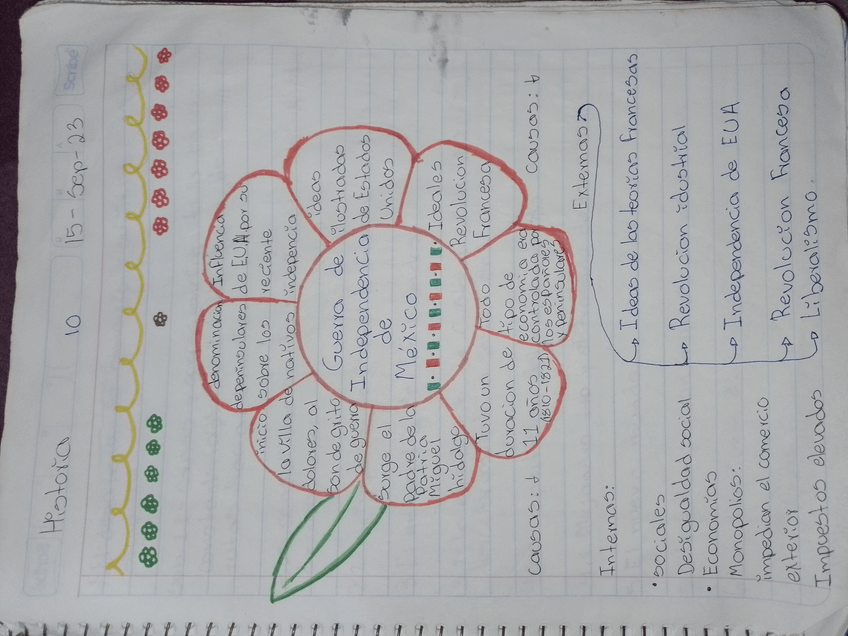 Historia
10
15-Sep-23
Scribe
Guerra de
Independencia
de
México
denominacion
de peninsulares
sobre los
nativos
Influencia
de EUA por su
reciente
indepencia
ideas
ilustradas
de Estados
Unidos
Ideales
Revolucion
Francesa
Todo
tipo de
economia era
controlada por
los españoles
y peninsulares
Tuvo un
duracion de
11 años
(1810-1821)
Surge el
Padre de la
Patria
Miguel
hidalgo
inicio
la villa de
dolores, al
son de grito
de guerra
Causas:
Internas:
• sociales
Desigualdad social
• Economias
Monopolios:
impedian el comercio
exterior
Impuestos elevados
causas:
Externas
Ideas de las teorias francesas
Revolucion idustrial
Independencia de EUA
Revolucion Francesa
Liberalismo.